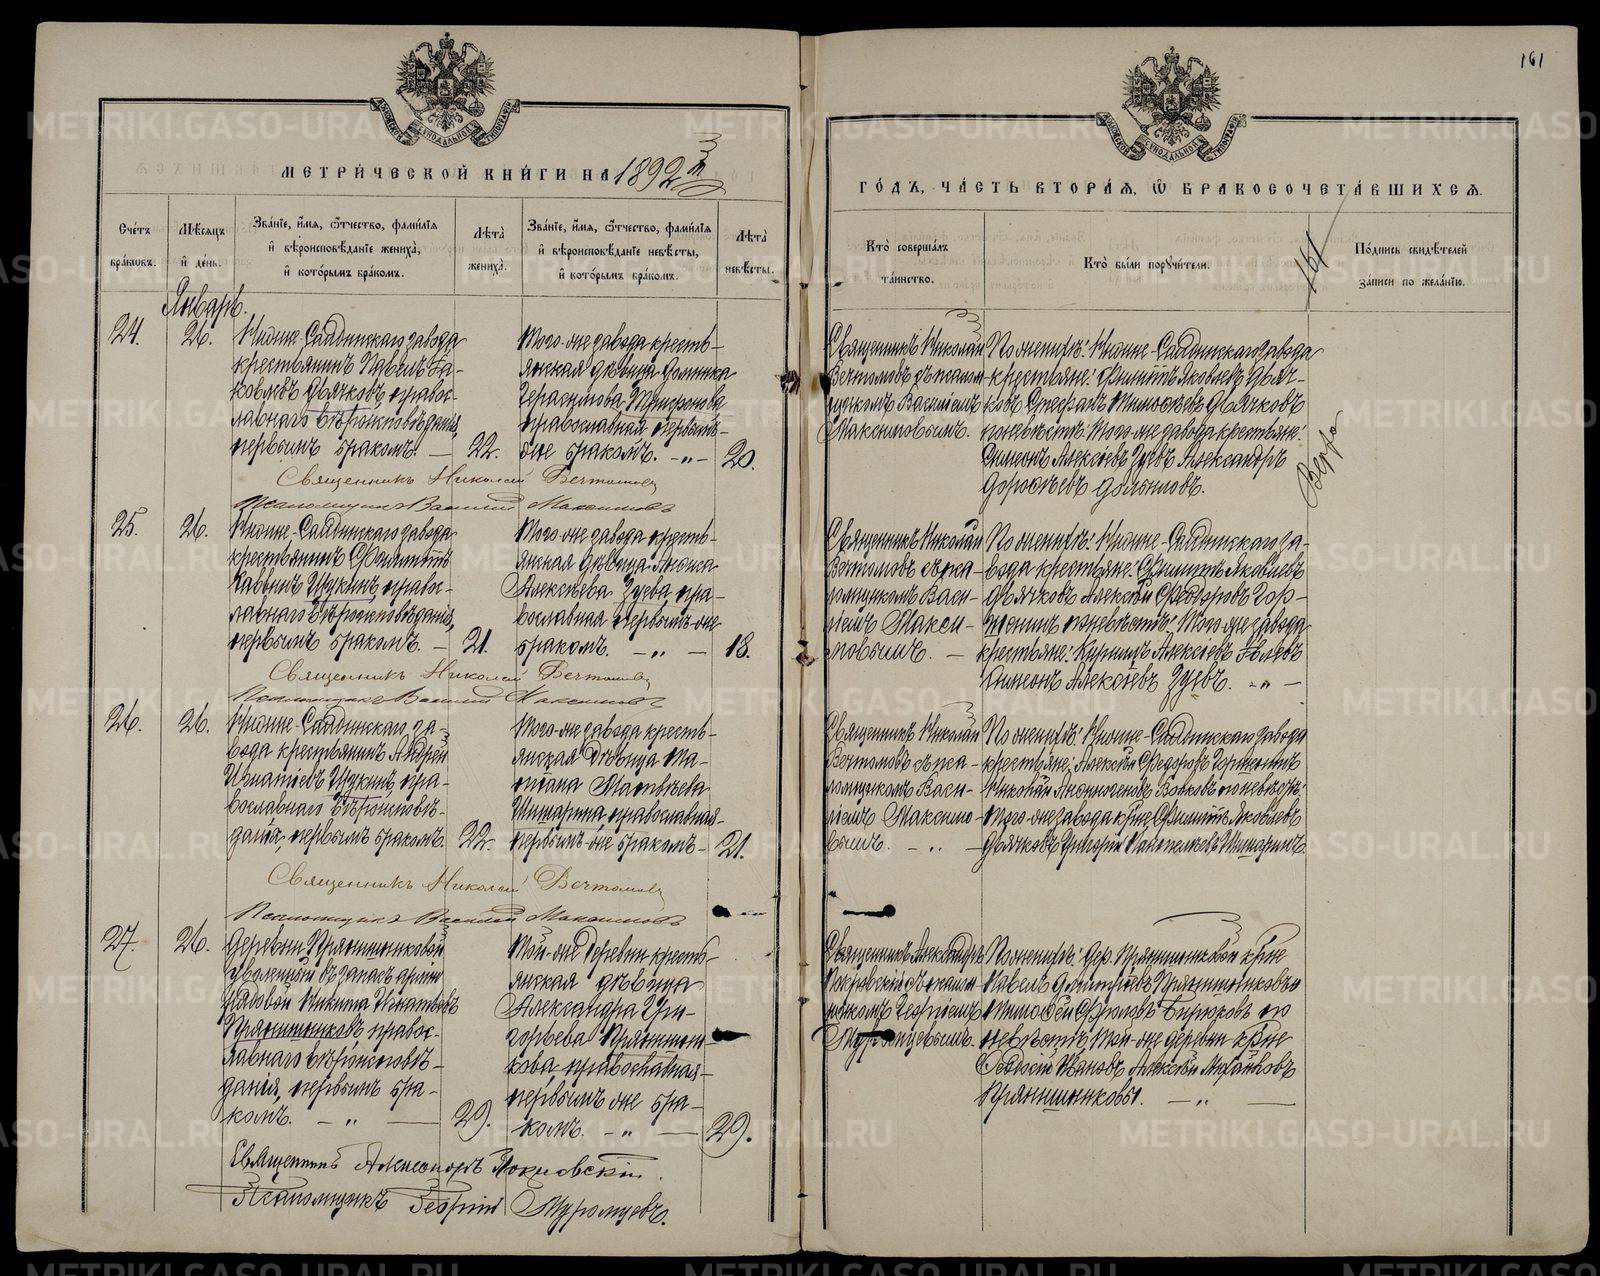 161
МЕТРИ́ЧЕСКОЙ КНИ́ГИ НА 1892й
ГО́ДЪ, ЧА́СТЬ ВТОРА́Я, Ѿ БРАКОСОЧЕТА́ВШИХСЯ.
Сче́тъ бра́кѡвъ.
Мѣ́сяцъ и҆ де́нь.
Зва́нїе, и҆́мя, ѻ҆́тчество, фами́лїя и҆ вѣроисповѣ́данїе жениха̀, и҆ кото́рымъ бра́комъ.
Лѣ́та̀ жениха̀.
Зва́нїе, и҆́мя, ѻ҆́тчество, фами́лїя и҆ вѣроисповѣ́данїе невѣ́сты, и҆ кото́рымъ бра́комъ.
Лѣ́та̀ невѣ́сты.
Кто̀ соверша́лъ та́инство.
Кто̀ бы́ли порꙋчи́тели.
161
По́дпись свидѣ́телей за́писи по жела́нїю.
Январь.
24.
26.
Нижне-Салдинскаго завода
крестьянинъ Павелъ Яковлевъ
Дьячковъ православнаго
вѣроисповѣданія,
первымъ бракомъ.
22.
Того-же завода крестьянская
дѣвица Домника
Герасимова Трифонова
православная первымъ-
же бракомъ.
20.
Священникъ Николай
Вечтомовъ съ псаломщикомъ
Василіемъ
Максимовымъ.
По женихѣ: Нижне-Салдинскаго завода
крестьяне: Филиппъ Яковлевъ Дьячковъ
Стефанъ Тимоѳеевъ Дьячковъ
по невѣстѣ: Того-же завода крестьяне:
Симеонъ Алексѣевъ Зуевъ Александръ
Дороѳеевъ
Священникъ Николай Вечтомовъ
Псаломщикъ Василій Максимовъ
25.
26.
Нижне-Салдинскаго завода
крестьянинъ Филиппъ
Щукинъ православнаго
вѣроисповѣданія,
первымъ бракомъ.
21.
Того-же завода крестьянская
дѣвица
Алексѣева Зуева православная
первымъ-же
бракомъ.
18.
Священникъ Николай
Вечтомовъ съ псаломщикомъ
Василіемъ
Максимовымъ.
По женихѣ: Нижне-Салдинскаго завода
крестьяне: Филиппъ Яковлевъ
Дьячковъ Алексѣй Ѳеодоровъ
по невѣстѣ: Того-же завода
крестьяне: Кириллъ Алексѣевъ
Симеонъ Алексѣевъ Зуевъ.
Священникъ Николай Вечтомовъ
Псаломщикъ Василій Максимовъ
26.
26.
Нижне-Салдинскаго завода
крестьянинъ Андрей
Игнатіевъ Щукинъ православнаго
вѣроисповѣданія,
первымъ бракомъ.
22.
Того-же завода крестьянская
дѣвица
Матвѣева
православная
первымъ-же бракомъ
21.
Священникъ Николай
Вечтомовъ съ псаломщикомъ
Василіемъ Максимовымъ.
По женихѣ: Нижне-Салдинскаго завода
крестьяне: Алексѣй Ѳедоровъ
Николай Волковъ по невѣстѣ:
Того-же завода кр-не Филиппъ Яковлевъ
Дьячковъ Григорій
Священникъ Николай Вечтомовъ
Псаломщикъ Василій Максимовъ
27.
26.
Деревни Прянишниковой
уволенный въ запасъ арміи
рядовой Никита Игнатьевъ
Прянишниковъ православнаго
вѣроисповѣданія,
первымъ бракомъ.
29.
Той-же деревни крестьянская
дѣвица
Александра Григорьева
Прянишникова,
православная
первымъ же бракомъ.
29.
Священникъ Александръ
Покровскій съ псаломщикомъ
Георгіемъ
Муромцевымъ.
По женихѣ: дер. Прянишниковой кр-не
Павелъ Димитріевъ Прянишниковъ и
Тимоѳей Бирюковъ по
невѣстѣ: Той-же деревни кр-не
Ѳеодосій Ивановъ Алексѣй Михайловъ
Прянишниковы.
Священникъ Александръ Покровскій.
Псаломщикъ Георгій Муромцевъ.